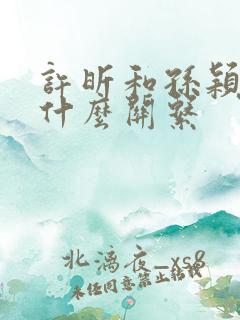 許昕和孫穎
什麼關系
北漓夜_xs8
未任同意禁止轉載